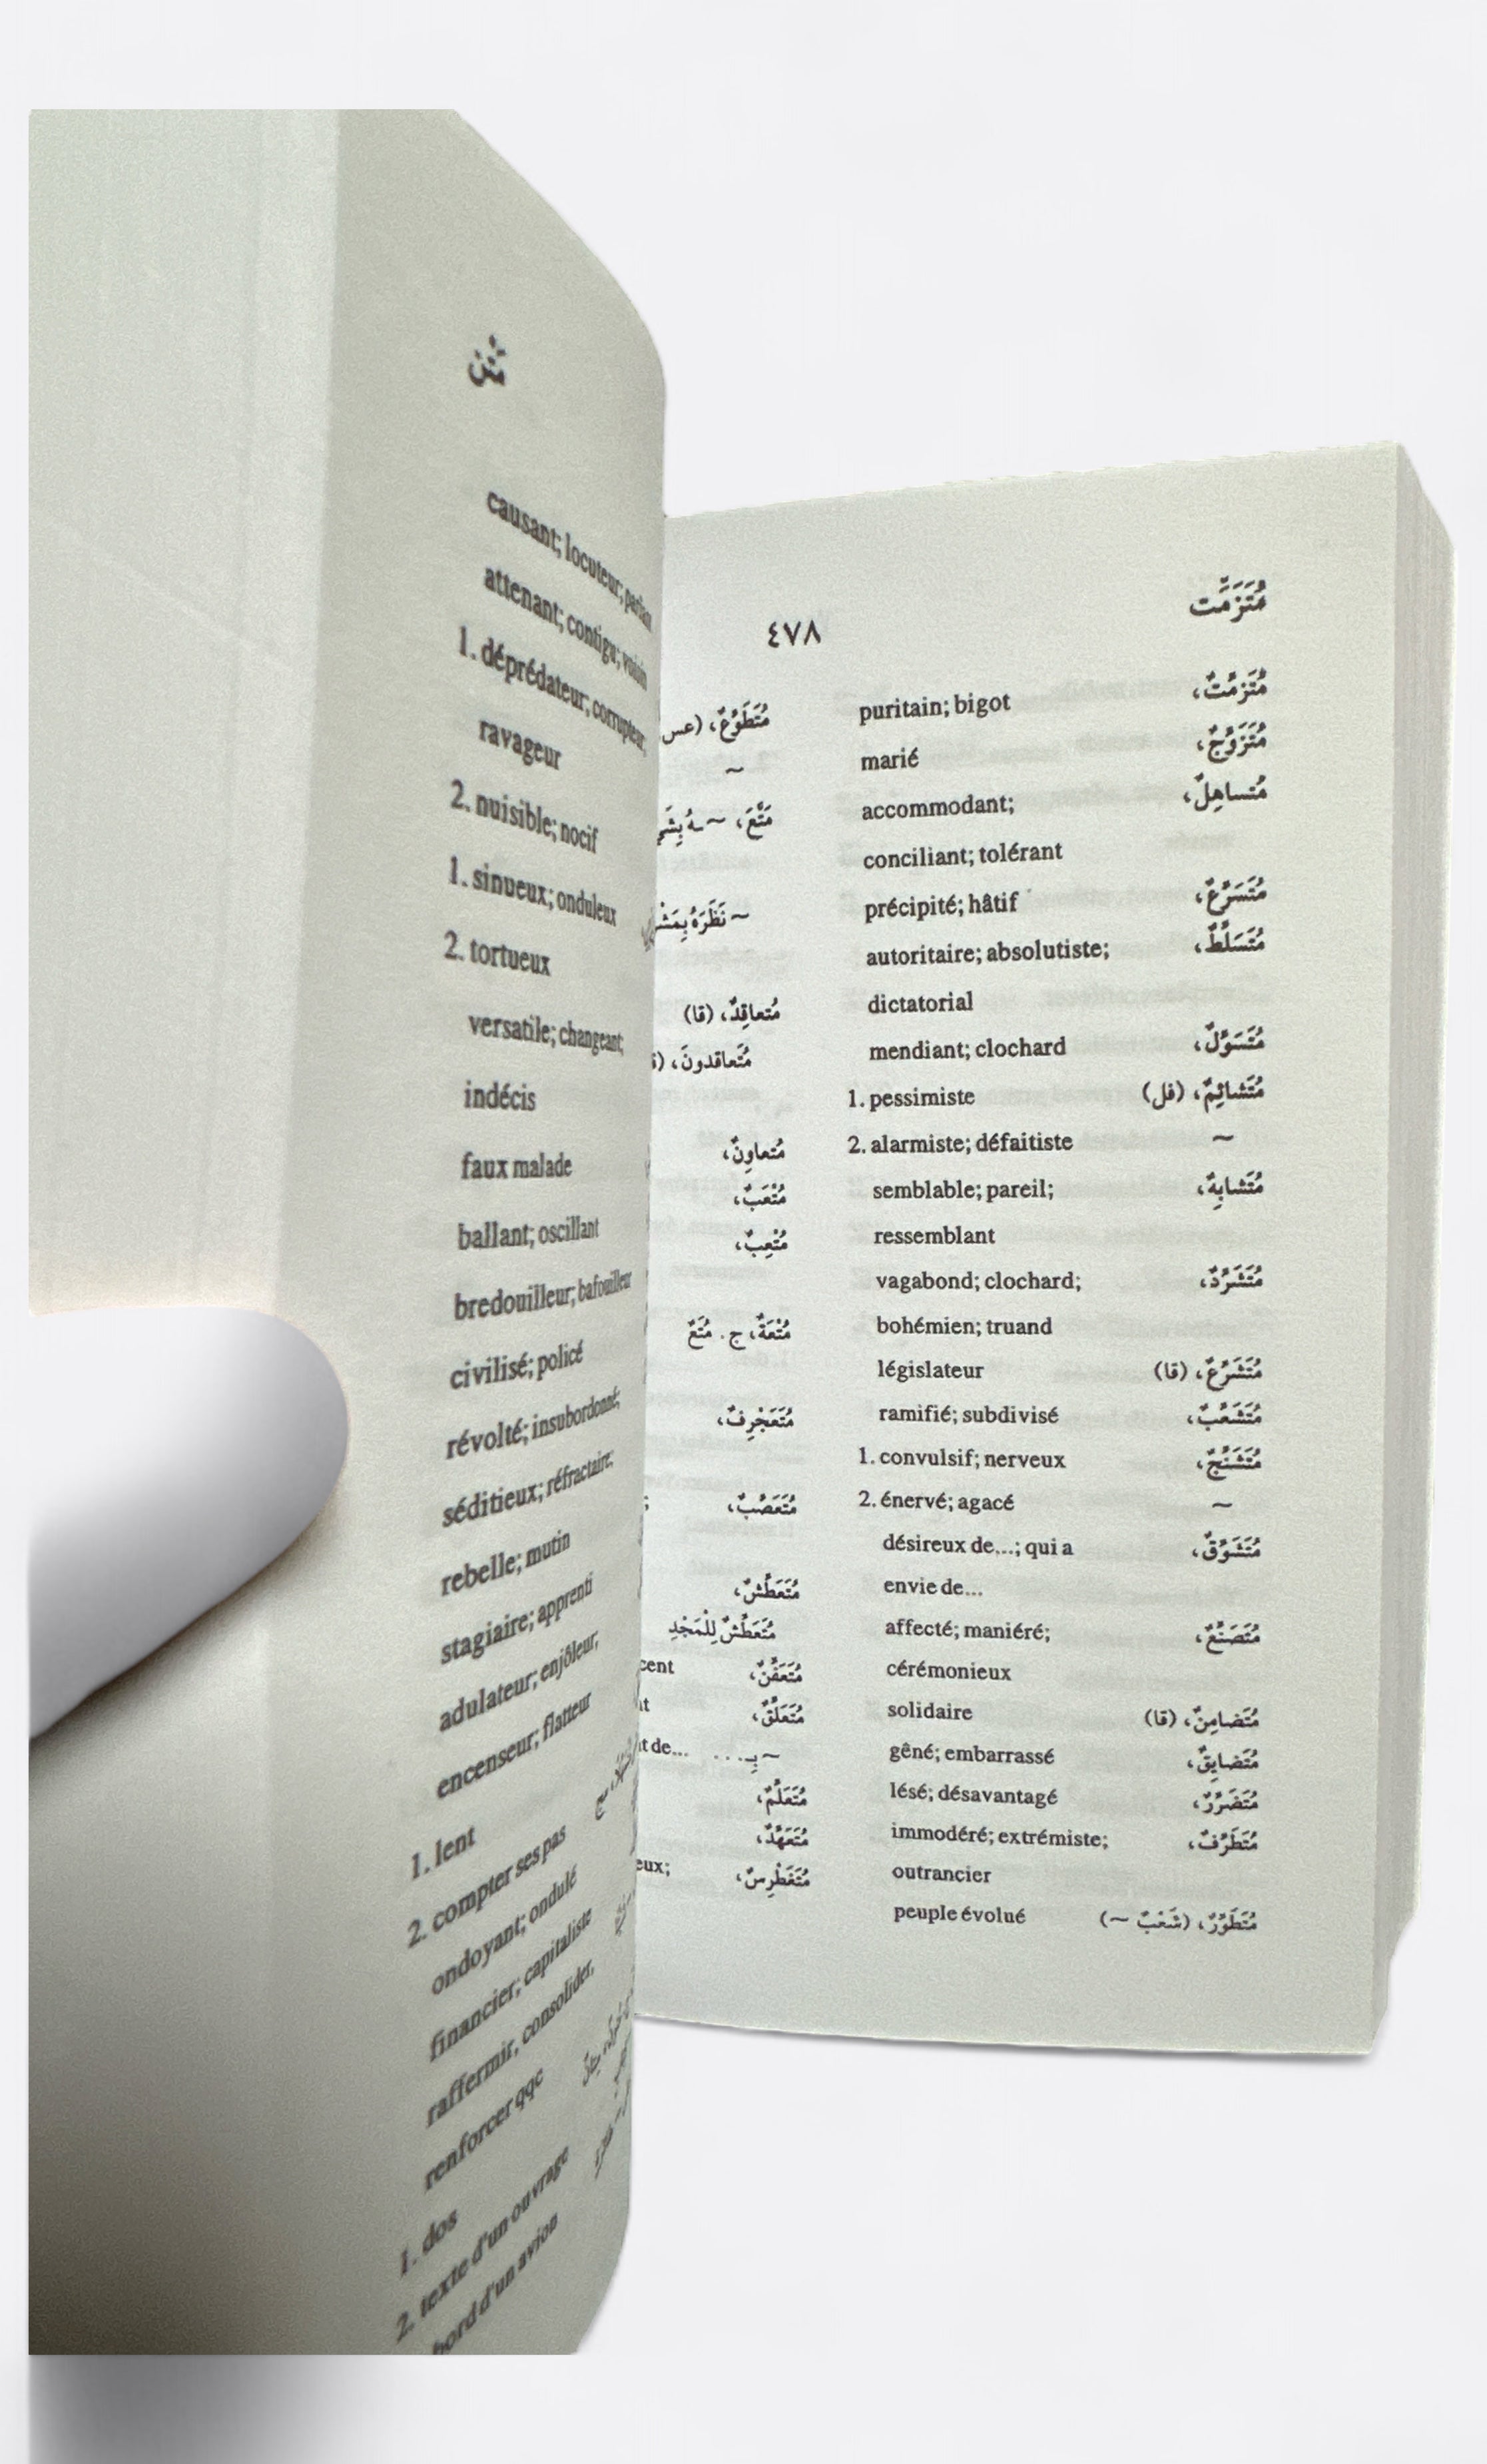 مَتْن
causant; locuteur; parlant
attenant; contigu; voisin
1. déprédateur; corrupteur;
ravageur
2. nuisible; nocif
1. sinueux; onduleux
2. tortueux
versatile; changeant;
indécis
faux malade
ballant; oscillant
bredouilleur; bafouilleur
civilisé; policé
révolté; insubordonné;
séditieux; réfractaire;
rebelle; mutin
stagiaire; apprenti
adulateur; enjôleur;
encenseur; flatteur
1. lent
2. compter ses pas
ondoyant; ondulé
financier; capitaliste
raffermir, consolider,
renforcer qqc
1. dos
2. texte d'un ouvrage
bord d'un avion
مُتَزَمَّت
٤٧٨
مُتَزَمِّتٌ، puritain; bigot
مُتَزَوِّجٌ، marié
مُتساهِلٌ، accommodant;
conciliant; tolérant
مُتَسَرِّعٌ، précipité; hâtif
مُتَسَلِّطٌ، autoritaire; absolutiste;
dictatorial
مُتَسَوِّلٌ، mendiant; clochard
مُتَشائِمٌ، (فل) 1. pessimiste
~ 2. alarmiste; défaitiste
مُتَشابِهٌ، semblable; pareil;
ressemblant
مُتَشَرِّدٌ، vagabond; clochard;
bohémien; truand
مُتَشَرِّعٌ، (قا) législateur
مُتَشَعِّبٌ، ramifié; subdivisé
مُتَشَنِّجٌ، 1. convulsif; nerveux
~ 2. énervé; agacé
مُتَشَوِّقٌ، désireux de...; qui a
envie de...
مُتَصَنِّعٌ، affecté; maniéré;
cérémonieux
مُتَضامِنٌ، (قا) solidaire
مُتَضايِقٌ، gêné; embarrassé
مُتَضَرِّرٌ، lésé; désavantagé
مُتَطَرِّفٌ، immodéré; extrémiste;
outrancier
مُتَطَوِّرٌ، (شَعْبٌ ~) peuple évolué
مُتَطَوِّعٌ، (عس
~
مَتَّعَ، ~ـهُ بِشَيْ
~ نَظَرَهُ بِمَشْ
مُتعاقِدٌ، (قا)
مُتَعاقدونَ، (ق
مُتعاوِنٌ،
مُتْعَبٌ،
مُتْعِبٌ،
مُتْعَةٌ، ج. مُتَعٌ
مُتَعَجْرِفٌ،
مُتَعَصِّبٌ، ;
مُتَعَطِّشٌ،
مُتَعَطِّشٌ لِلْمَجْدِ
مُتَعَفِّنٌ، cent
مُتَعَلِّقٌ، t
~ بِـ... t de...
مُتَعَلِّمٌ،
مُتَعَهِّدٌ،
مُتَغَطْرِسٌ، eux;